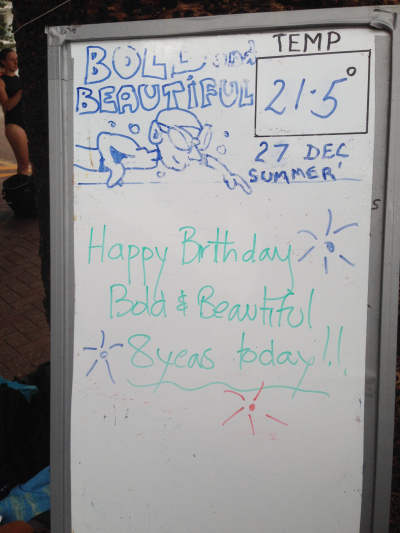 BOLD and
BEAUTIFUL
TEMP
21.5°
27 DEC
SUMMER'
Happy Birthday
Bold & Beautiful
8 yeas today!!